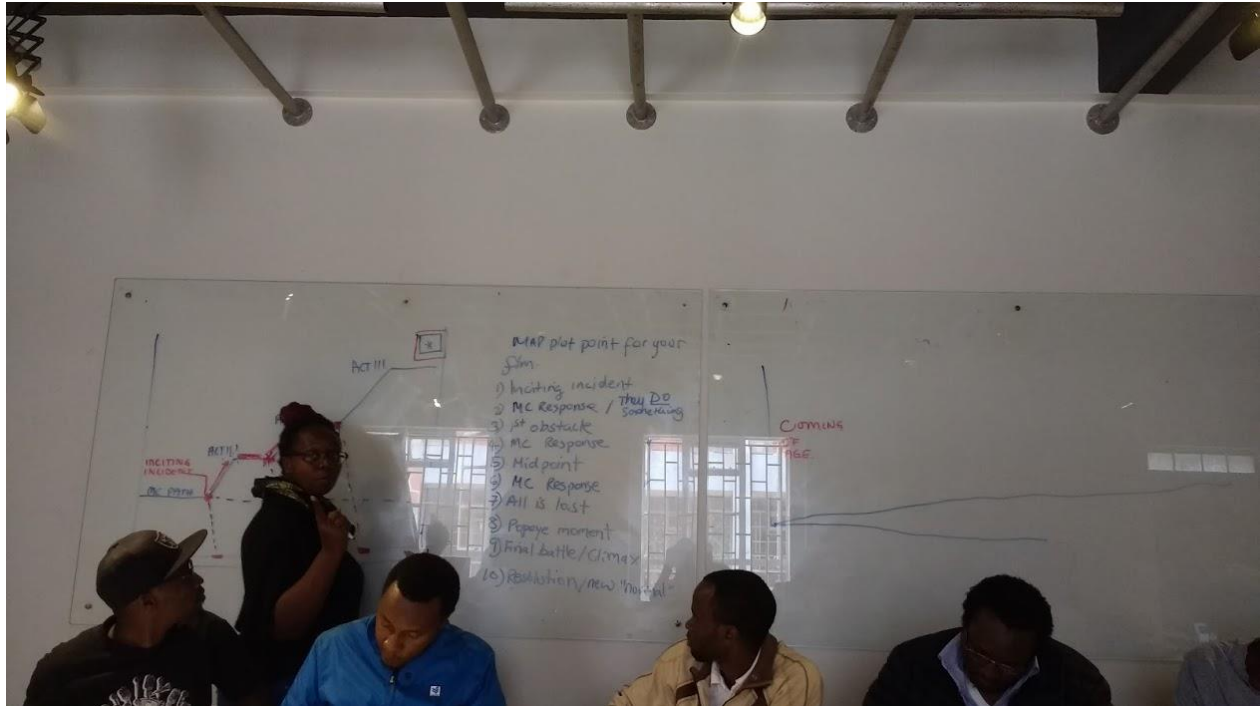 ACT III
*
INCITING
INCIDENT
MC PATH
ACT II
MAP plot point for your
film.
1) Inciting incident
2) MC Response / They DO
something
3) 1st obstacle
4) MC Response
5) Midpoint
6) MC Response
7) All is lost
8) Popeye moment
9) Final battle/Climax
10) Resolution/new "normal"
COMING
OF
AGE.